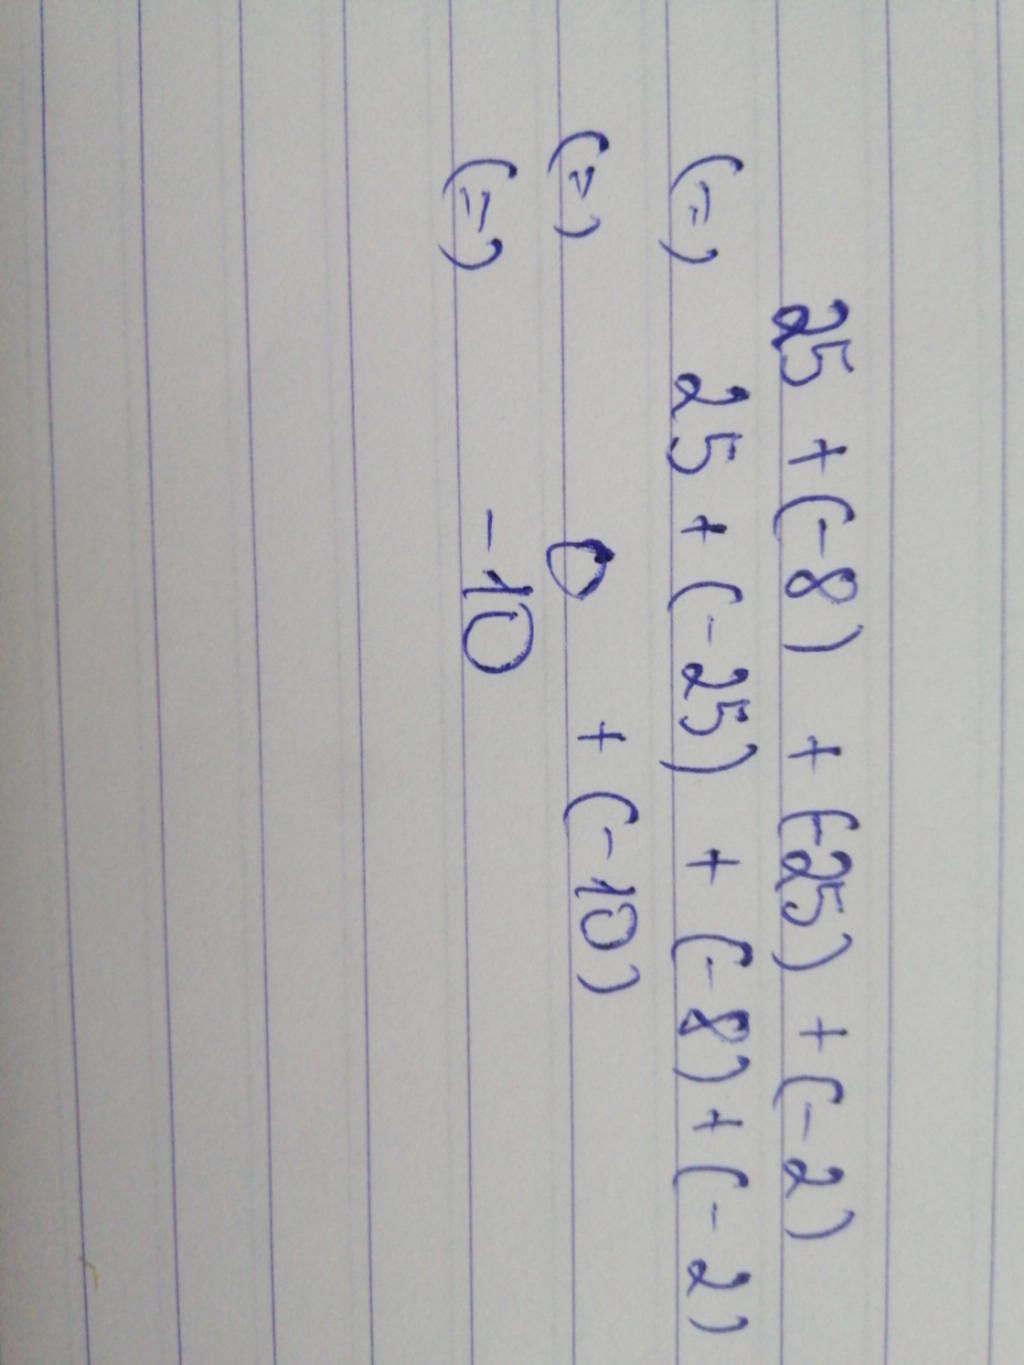 25 + (-8) + (-25) + (-2)
(=) 25 + (-25) + (-8) + (-2)
(=) 0 + (-10)
(=) -10